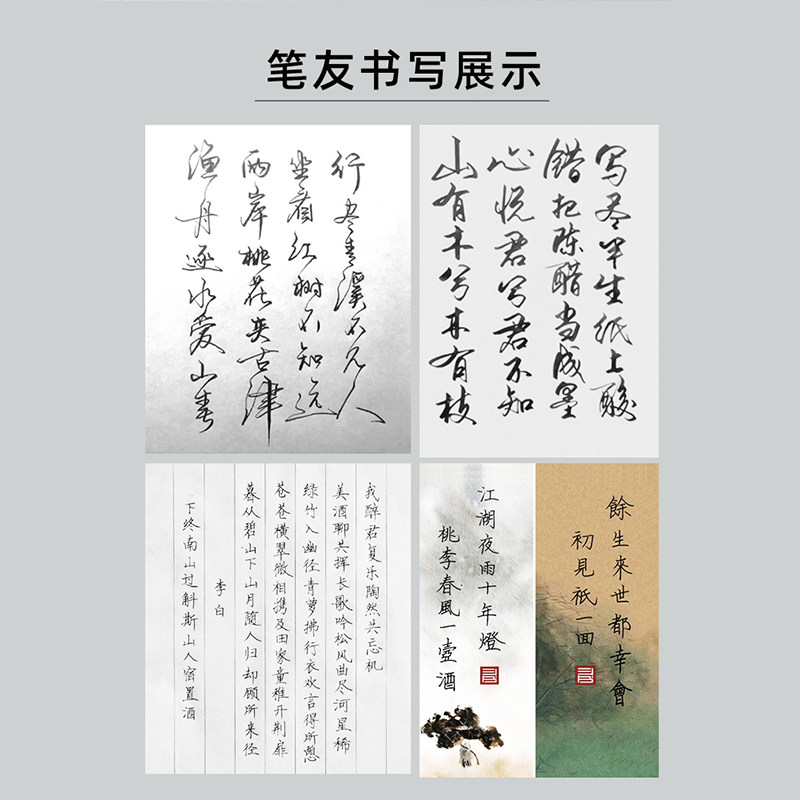 笔友书写展示
行尽青溪不见人
坐看红树不知远
两岸桃花夹古津
渔舟逐水爱山春
写尽半生纸上酸
错把陈醋当成墨
心悦君兮君不知
山有木兮木有枝
下终南山过斛斯山人宿置酒
李白
暮从碧山下山月随人归却顾所来径
苍苍横翠微相携及田家童稚开荆扉
绿竹入幽径青萝拂行衣欢言得所憩
美酒聊共挥长歌吟松风曲尽河星稀
我醉君复乐陶然共忘机
江湖夜雨十年燈
桃李春風一壺酒
餘生來世都幸會
初見祇一面